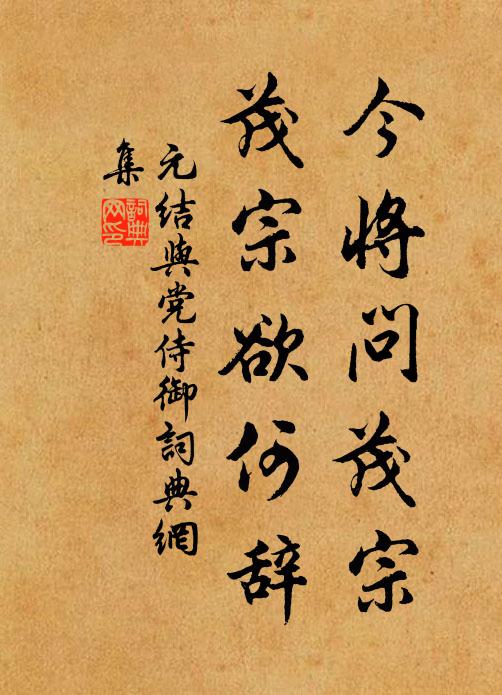 今将问茂宗
茂宗欲何辞
元结与党侍御词典網
集
詞典網印